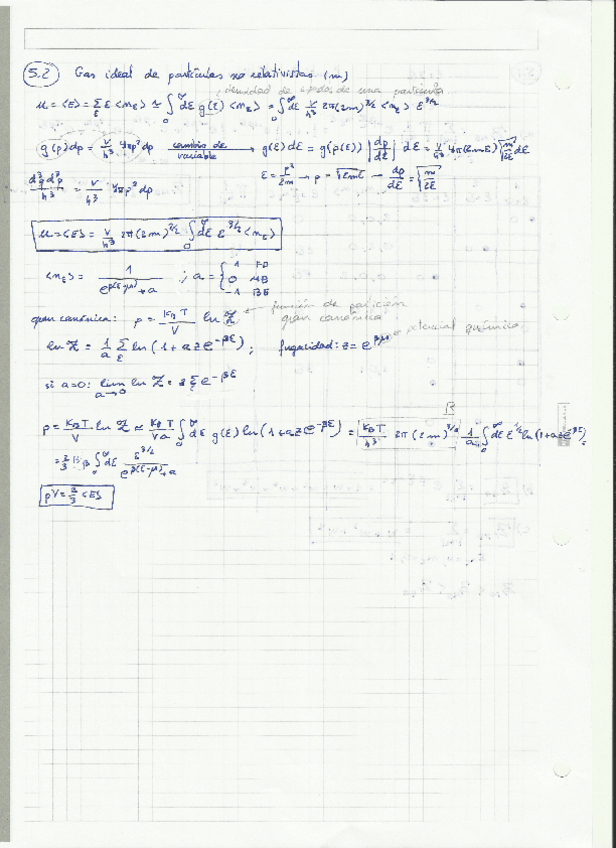 5.2 Gas ideal de partículas no relativistas (m)
densidad de estados de una partícula
U = <E> = Σ_ε ε <n_ε> ≃ ∫₀^∞ dε g(ε) <n_ε> = ∫₀^∞ dε V/h³ 2π(2m)^{3/2} <n_ε> ε^{3/2}
g(p)dp = V/h³ 4πp² dp cambio de variable → g(ε)dε = g(p(ε)) |dp/dε| dε = V/h³ 4π(2mε) √(m/2ε) dε
d³q d³p / h³ = V/h³ 4πp² dp ε = p²/2m → p = √(2mε) → dp/dε = √(m/2ε)
U = <E> = V/h³ 2π(2m)^{3/2} ∫₀^∞ dε ε^{3/2} <n_ε>
<n_ε> = 1/(e^{β(ε-μ)} + a) ; a = { 1 FD
0 MB
-1 BE
gran canónica: p = K_B T/V ln Z ← función de partición gran canónica
ln Z = 1/a Σ_ε ln(1 + a z e^{-βε}) ; fugacidad: z = e^{βμ} ← potencial químico
si a=0: lim_{a→0} ln Z = z Σ_ε e^{-βε}
p = K_B T/V ln Z ≃ K_B T/(V a) ∫₀^∞ dε g(ε) ln(1 + a z e^{-βε}) = K_B T/h³ 2π(2m)^{3/2} 1/a ∫₀^∞ dε ε^{1/2} ln(1 + a z e^{-βε}) =
B
= 2/3 B β ∫₀^∞ dε ε^{3/2}/(e^{β(ε-μ)} + a)
pV = 2/3 <E>